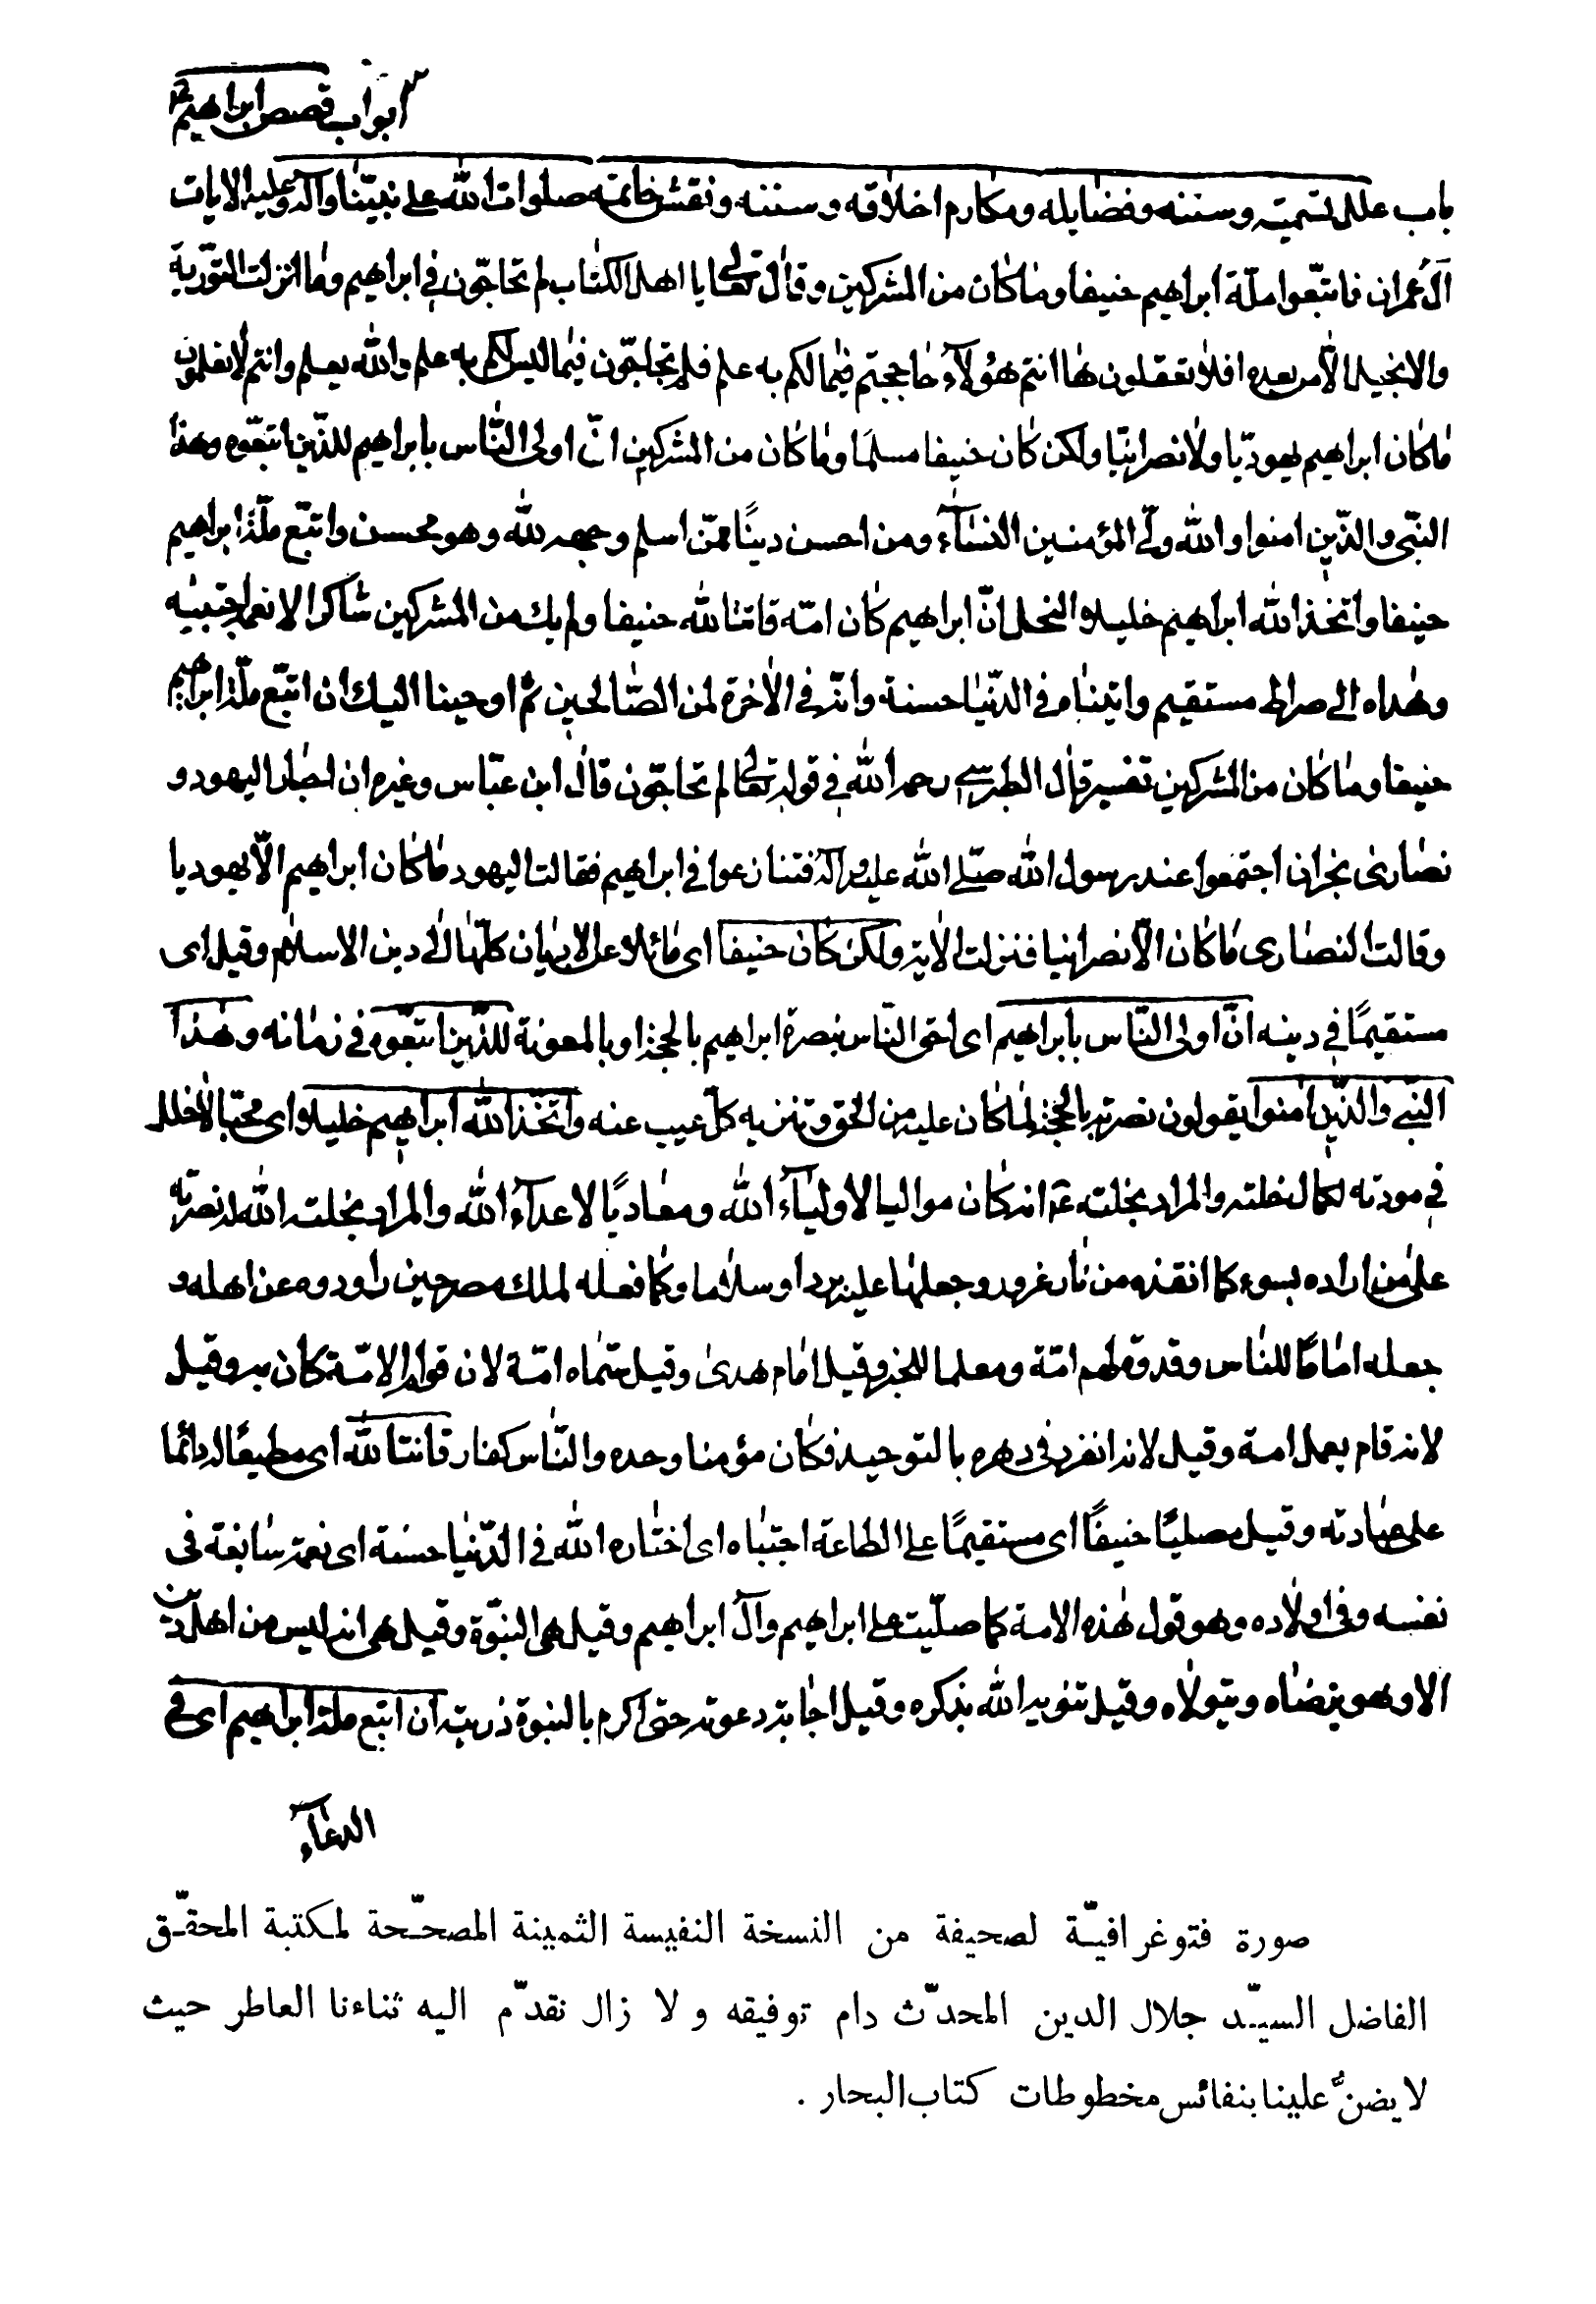 ابواب قصص ابراهيم ع
باب علل تسميته وسننه وفضايله ومكارم اخلاقه وسننه ونقش خاتمه صلوات الله على نبيّنا وآله وعليه الايات
آل عمران فاتبّعوا ملّة ابراهيم حنيفا وماكان من المشركين وقال تعالى يا اهل الكتاب لم تحاجّون في ابراهيم وما انزلت التورية
والانجيل الّا من بعده افلا تعقلون ها انتم هؤلآء حاججتم فيما لكم به علم فلم تحاجّون فيما ليس لكم به علم والله يعلم وانتم لا تعلمون
ماكان ابراهيم يهوديّا ولا نصرانيّا ولكن كان حنيفا مسلمًا وماكان من المشركين انّ اولى النّاس بابراهيم للذّين اتبّعوه وهذا
النبّى والذّين امنوا والله ولىّ المؤمنين النسآء ومن احسن دينًا ممّن اسلم وجهه لله وهو محسن واتبّع ملّة ابراهيم
حنيفا واتخذ الله ابراهيم خليلا النحل انّ ابراهيم كان امّة قانتا لله حنيفا ولم يك من المشركين شاكرا لانعمه اجتبيه
وهداه الى صراط مستقيم واتيناه في الدّنيا حسنة وانّه في الاخرة لمن الصّالحين ثمّ اوحينا اليك ان اتبّع ملّة ابراهيم
حنيفا وماكان من المشركين تفسير قال الطبرسي رحمه الله في قوله تعالى لم تحاجّون قال ابن عبّاس وغيره ان احبار اليهود و
نصارى نجران اجتمعوا عند رسول الله صلّى الله عليه وآله فتنازعوا في ابراهيم فقالت اليهود ماكان ابراهيم الّا يهوديا
وقالت النصارى ماكان الّا نصرانيا فنزلت الاية ولكن كان حنيفا اى مائلا عن الاديان كلّها الى دين الاسلام وقيل اى
مستقيمًا في دينه انّ اولى النّاس بابراهيم اى احق النّاس بنصرة ابراهيم بالحجة او بالمعونة للذّين اتبّعوه في زمانه وهذا
النبّي والذّين امنوا يقولون نصرته بالحجة لماكان عليه من الحق وتنزيه كلّ عيب عنه واتخّذ الله ابراهيم خليلا اى محبّا لا خلل
في مودته لكمال خلته والمراد بخلته ع انه كان مواليا لاوليآء الله ومعاديًا لاعدآء الله والمراد بخلته الله له نصرته
على من اراده بسوء كما انقذه من نار نمرود وجعلها عليه بردا وسلاما وكما فعله لملك مصر حين راوده عن اهله و
جعله امامًا للناس وقدوة لهم امّة ومعلما للخير وقيل امام هدى وقيل سمّاه امّة لان قوام الامّة كان به وقيل
لانه قام بعمل امة وقيل لانه انفرد في دهره بالتوحيد فكان مؤمنا وحده والنّاس كفار قانتا لله اى مطيعًا له دائما
على عبادته وقيل مصليًا حنيفًا اى مستقيمًا على الطاعة اجتباه اى اختاره الله في الدّنيا حسنة اى نعمة سابغة في
نفسه وفي اولاده وهو قول هذه الامة كما صلّيت على ابراهيم وآل ابراهيم وقيل هى النبوّة وقيل هى انه ليس من اهل دين
الا وهو يرضاه ويتولاه وقيل تنويه الله بذكره وقيل اجابة دعوته حتى اكرم بالنبوة ذريته ان اتبع ملة ابراهيم اى في
الدعآء
صورة فتوغرافيّة لصحيفة من النسخة النفيسة الثمينة المصحّحة لمكتبة المحقّق
الفاضل السيّد جلال الدين المحدّث دام توفيقه و لا زال نقدّم اليه ثناءنا العاطر حيث
لا يضنُّ علينا بنفائس مخطوطات كتاب البحار .